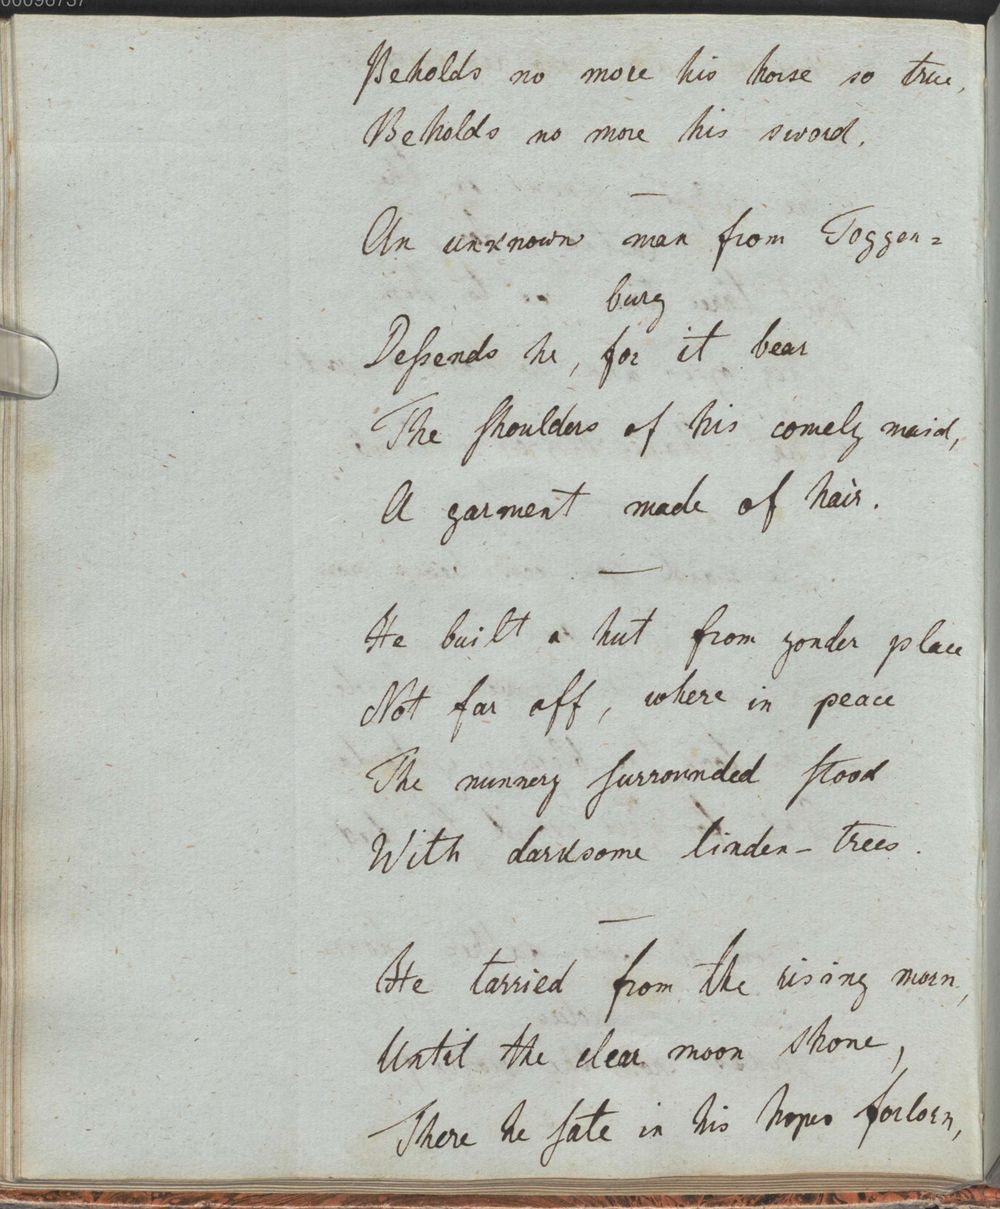 00096737
Beholds no more his horse so true,
Beholds no more his sword.
An unknown man from Toggen=
burg
Deſsends he, for it bear
The ſhoulders of his comely maid,
A garment made of hair.
He built a hut from yonder place
Not far off, where in peace
The nunnery ſurrounded ſtood
With darksome linden-trees.
He tarried from the rising morn,
Until the clear moon shone,
There he ſate in his hopes forlorn,